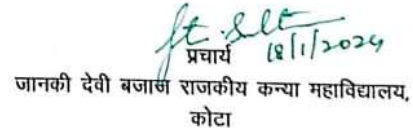 18/1/2024
प्रचार्य
जानकी देवी बजाज राजकीय कन्या महाविद्यालय,
कोटा